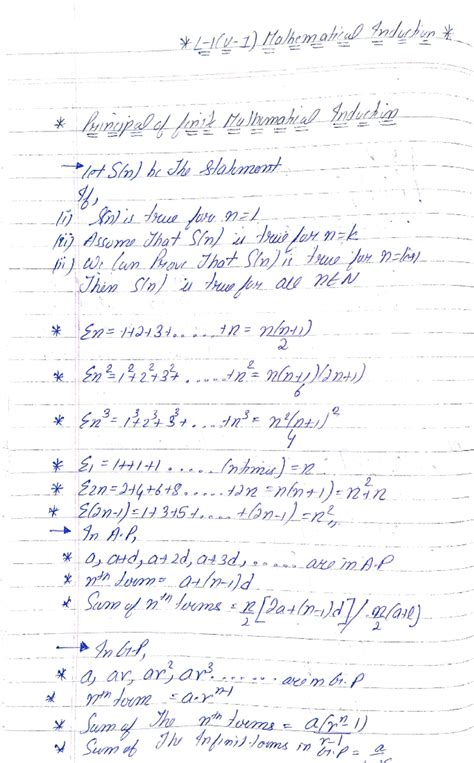 * L-1(U-1) Mathematical Induction *
* Principal of finite Mathematical Induction
→ Let S(n) be The Statement
If,
(i) S(n) is true for n=1
(ii) Assume That S(n) is true for n=k
(iii) We Can Prove That S(n) is true for n=k+1
Then S(n) is true for all n∈N
* Σn = 1+2+3+......+n = n(n+1)/2
* Σn² = 1²+2²+3²+......+n² = n(n+1)(2n+1)/6
* Σn³ = 1³+2³+3³+......+n³ = n²(n+1)²/4
* Σ1 = 1+1+1......(n times) = n
* Σ2n = 2+4+6+8......+2n = n(n+1) = n²+n
* Σ(2n-1) = 1+3+5+......+(2n-1) = n²
→ In A.P,
* a, a+d, a+2d, a+3d,...... are in A.P
* nth term = a+(n-1)d
* Sum of nth terms = n/2[2a+(n-1)d] / n/2(a+l)
→ In G.P,
* a, ar, ar², ar³...... are in G.P
* nth term = a.r^n-1
* Sum of The nth terms = a(r^n-1)/r-1
* Sum of The Infinit terms in G.P = a